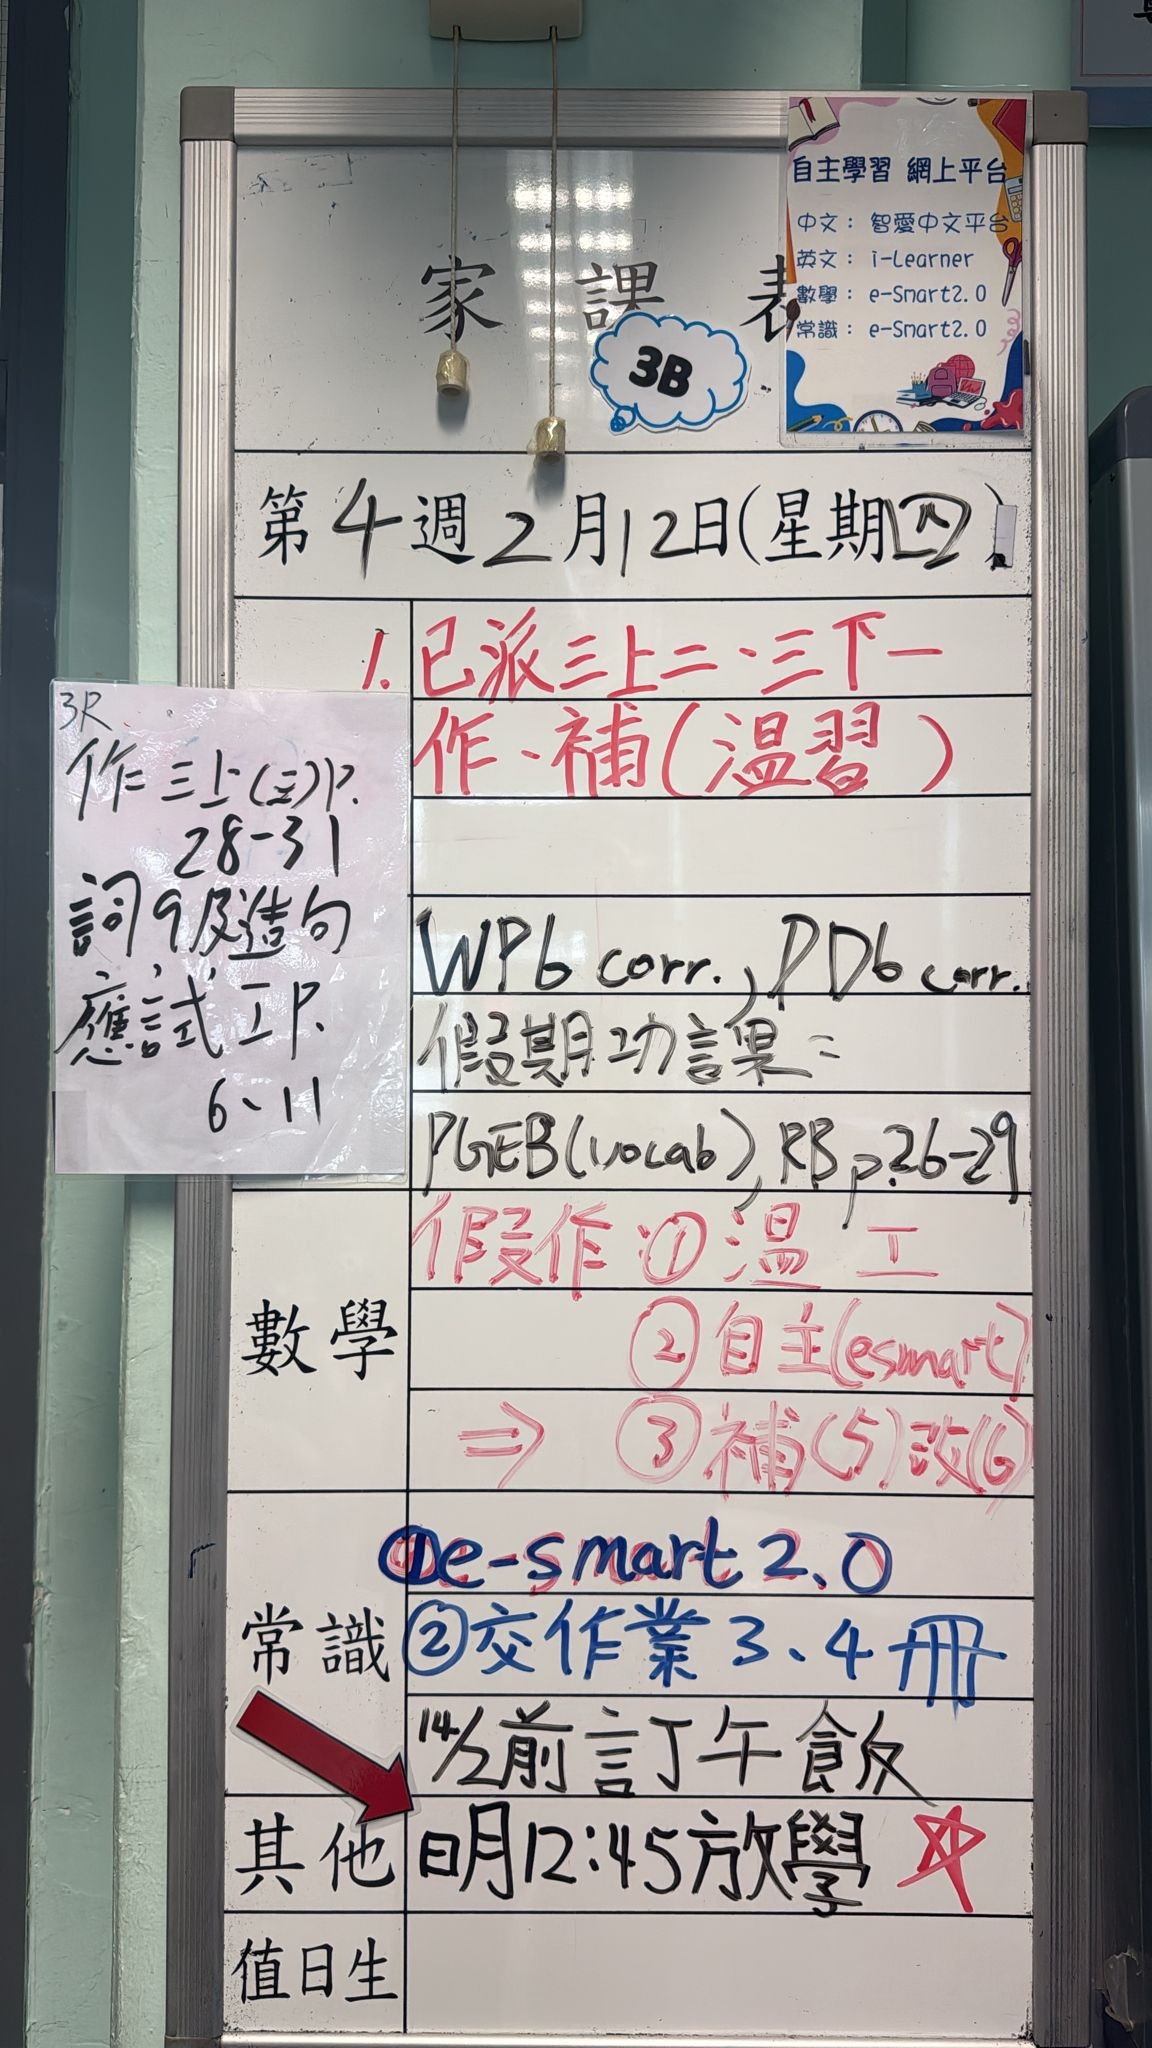 家 課 表
3B
自主學習 網上平台
中文： 智愛中文平台
英文： i-Learner
數學： e-Smart2.0
常識： e-Smart2.0
第4週2月12日(星期四)
1. 已派三上二、三下一
作、補(溫習)
3R
作三上(三)P.
28-31
詞9及造句
應試工P.
6、11
WP6 corr., PD6 corr.
假期功課：
PGEB(vocab), RB p.26-29
數學
假作：①溫 工
②自主(esmart)
⇒ ③補(5)改(6)
常識
①e-smart 2.0
②交作業3、4冊
14/2前訂午飯
其他
明12:45放學
值日生